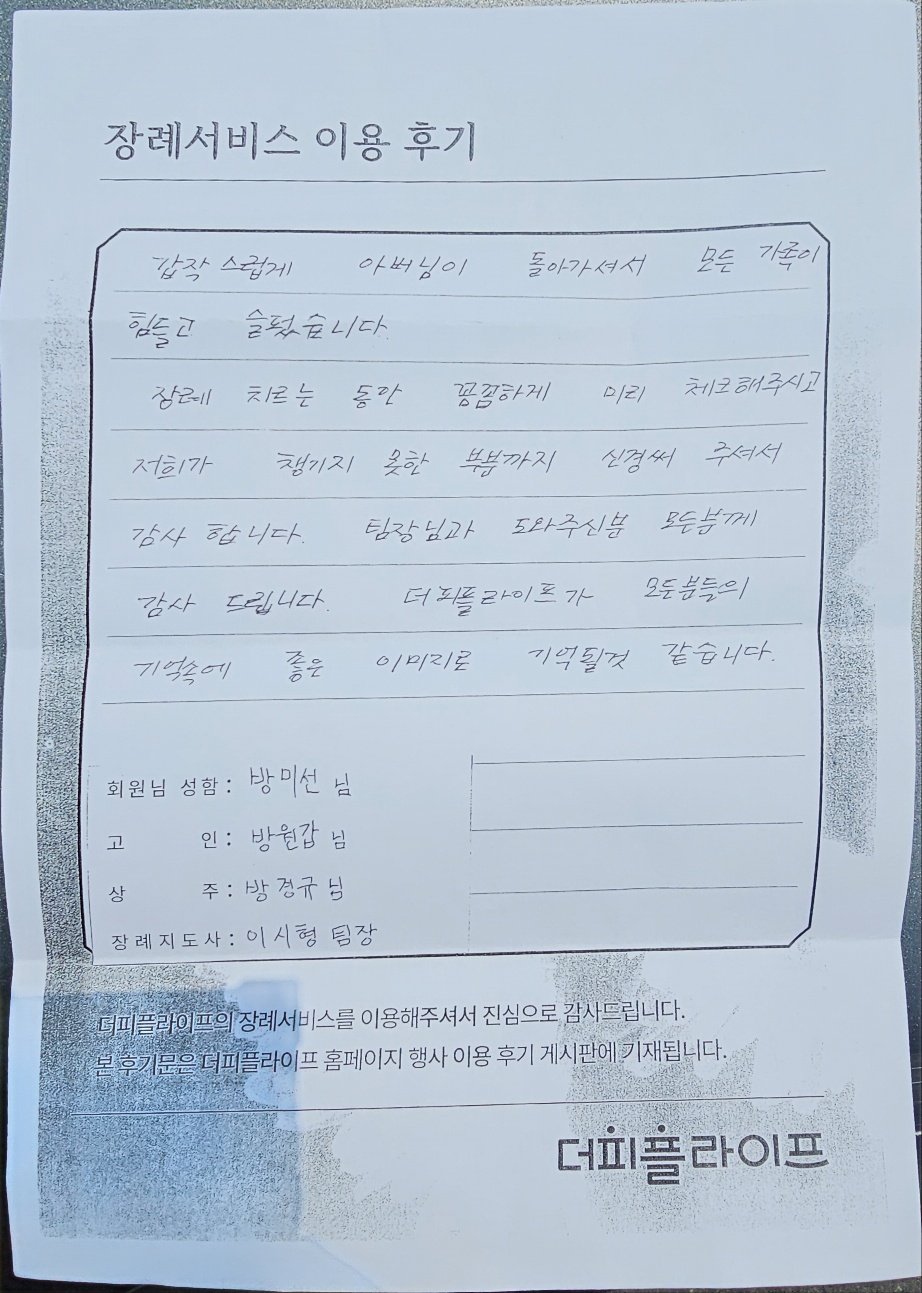 장례서비스 이용 후기
갑작스럽게 아버님이 돌아가셔서 모든 가족이
힘들고 슬펐습니다.
장례 치르는 동안 꼼꼼하게 미리 체크해주시고
저희가 챙기지 못한 부분까지 신경써 주셔서
감사 합니다. 팀장님과 도와주신분 모든분께
감사 드립니다. 더피플라이프가 모든분들의
기억속에 좋은 이미지로 기억될것 같습니다.
회원님 성함 : 방미선 님
고 인 : 방원갑 님
상 주 : 방경규 님
장례지도사 : 이시형 팀장
더피플라이프의 장례서비스를 이용해주셔서 진심으로 감사드립니다.
본 후기문은 더피플라이프 홈페이지 행사 이용 후기 게시판에 기재됩니다.
더피플라이프